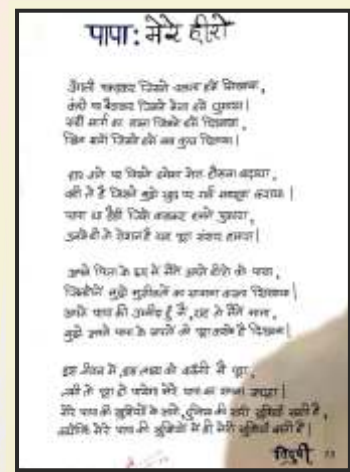 पापा: मेरे हीरो
उँगली पकड़कर जिसने चलना हमें सिखाया,
कंधे पर बैठाकर जिसने मेला हमें घुमाया।
सही मार्ग का रास्ता जिसने हमें दिखाया,
बिन मांगे जिसने हमें सब कुछ दिलाया।
हार जाने पर जिसने हमेशा मेरा हौसला बढ़ाया,
वही तो है जिसने मुझे खुद पर गर्व महसूस कराया।
पापा या डैडी जिसे कहकर हमने पुकारा,
उन्हीं से तो रोशन है यह पूरा संसार हमारा।
अपने पिता के रूप में मैंने अपने हीरो को पाया,
जिन्होंने मुझे मुसीबतों का सामना करना सिखाया।
अपने पापा की उम्मीद हूँ मैं, यह तो मैंने माना,
मुझे अपने पापा के सपनों को पूरा करके है दिखाना।
इस जीवन में, इस लक्ष्य को करूँगी मैं पूरा,
तभी तो पूरा हो पायेगा मेरे पापा का सपना अधूरा।
मेरे पापा की खुशियों के आगे, दुनिया की सारी खुशियाँ खाली हैं,
क्योंकि मेरे पापा की खुशियों में ही मेरी खुशियाँ सारी हैं।
विदुषी